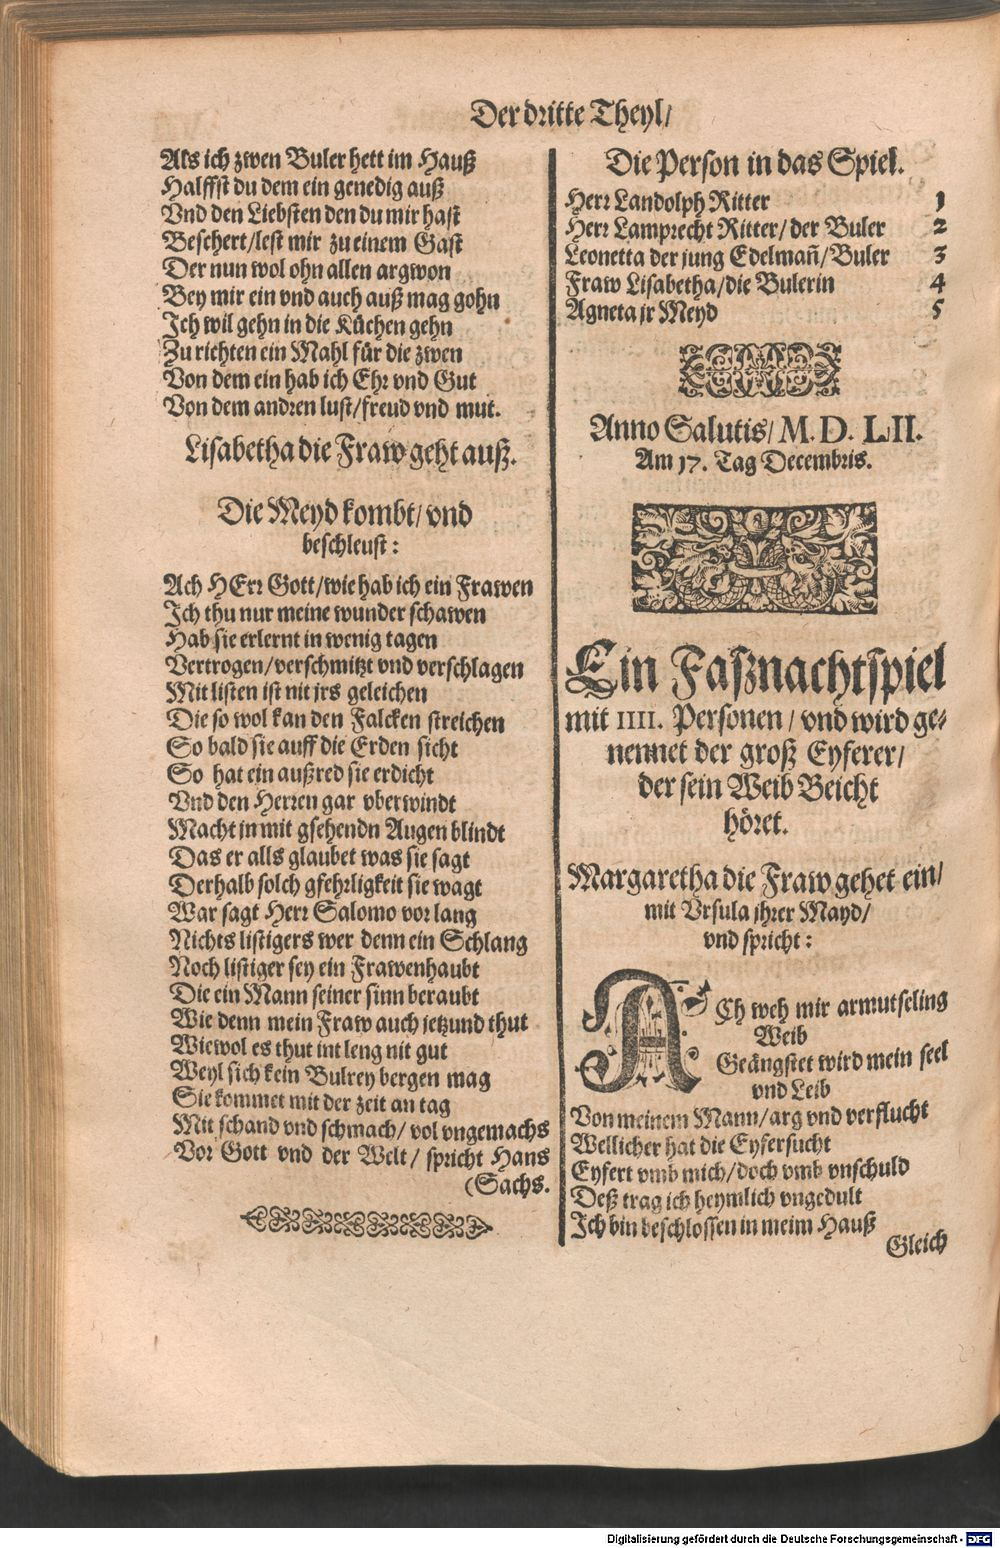 Der dritte Theyl/
Als ich zwen Buler hett im Hauß
Halffst du dem ein genedig auß
Vnd den Liebsten den du mir hast
Beschert/lest mir zu einem Gast
Der nun wol ohn allen argwon
Bey mir ein vnd auch auß mag gohn
Ich wil gehn in die Küchen gehn
Zu richten ein Mahl für die zwen
Von dem ein hab ich Ehr vnd Gut
Von dem andren lust/freud vnd mut.
Lisabetha die Fraw geht auß.
Die Meyd kombt/ vnd
beschleust:
Ach HErr Gott/wie hab ich ein Frawen
Ich thu nur meine wunder schawen
Hab sie erlernt in wenig tagen
Vertrogen/verschmitzt vnd verschlagen
Mit listen ist nit jrs geleichen
Die so wol kan den Falcken streichen
So bald sie auff die Erden sicht
So hat ein außred sie erdicht
Vnd den Herren gar vberwindt
Macht jn mit gsehendn Augen blindt
Das er alls glaubet was sie sagt
Derhalb solch gfehrligkeit sie wagt
War sagt Herr Salomo vor lang
Nichts listigers wer denn ein Schlang
Noch listiger sey ein Frawenhaubt
Die ein Mann seiner sinn beraubt
Wie denn mein Fraw auch jetzund thut
Wiewol es thut int leng nit gut
Weyl sich kein Bulrey bergen mag
Sie kommet mit der zeit an tag
Mit schand vnd schmach/ vol vngemachs
Vor Gott vnd der Welt/ spricht Hans
(Sachs.
Die Person in das Spiel.
Herr Landolph Ritter 1
Herr Lamprecht Ritter/ der Buler 2
Leonetta der jung Edelmañ/Buler 3
Fraw Lisabetha/die Bulerin 4
Agneta jr Meyd 5
Anno Salutis/ M. D. LII.
Am 17. Tag Decembris.
Ein Faßnachtspiel
mit IIII. Personen/ vnd wird ge-
nennet der groß Eyferer/
der sein Weib Beicht
höret.
Margaretha die Fraw gehet ein/
mit Vrsula jhrer Mayd/
vnd spricht:
ACh weh mir armutseling
Weib
Geängstet wird mein seel
vnd Leib
Von meinem Mann/arg vnd verflucht
Wellicher hat die Eyfersucht
Eyfert vmb mich/doch vmb vnschuld
Deß trag ich heymlich vngedult
Ich bin beschlossen in meim Hauß
Gleich
Digitalisierung gefördert durch die Deutsche Forschungsgemeinschaft - DFG